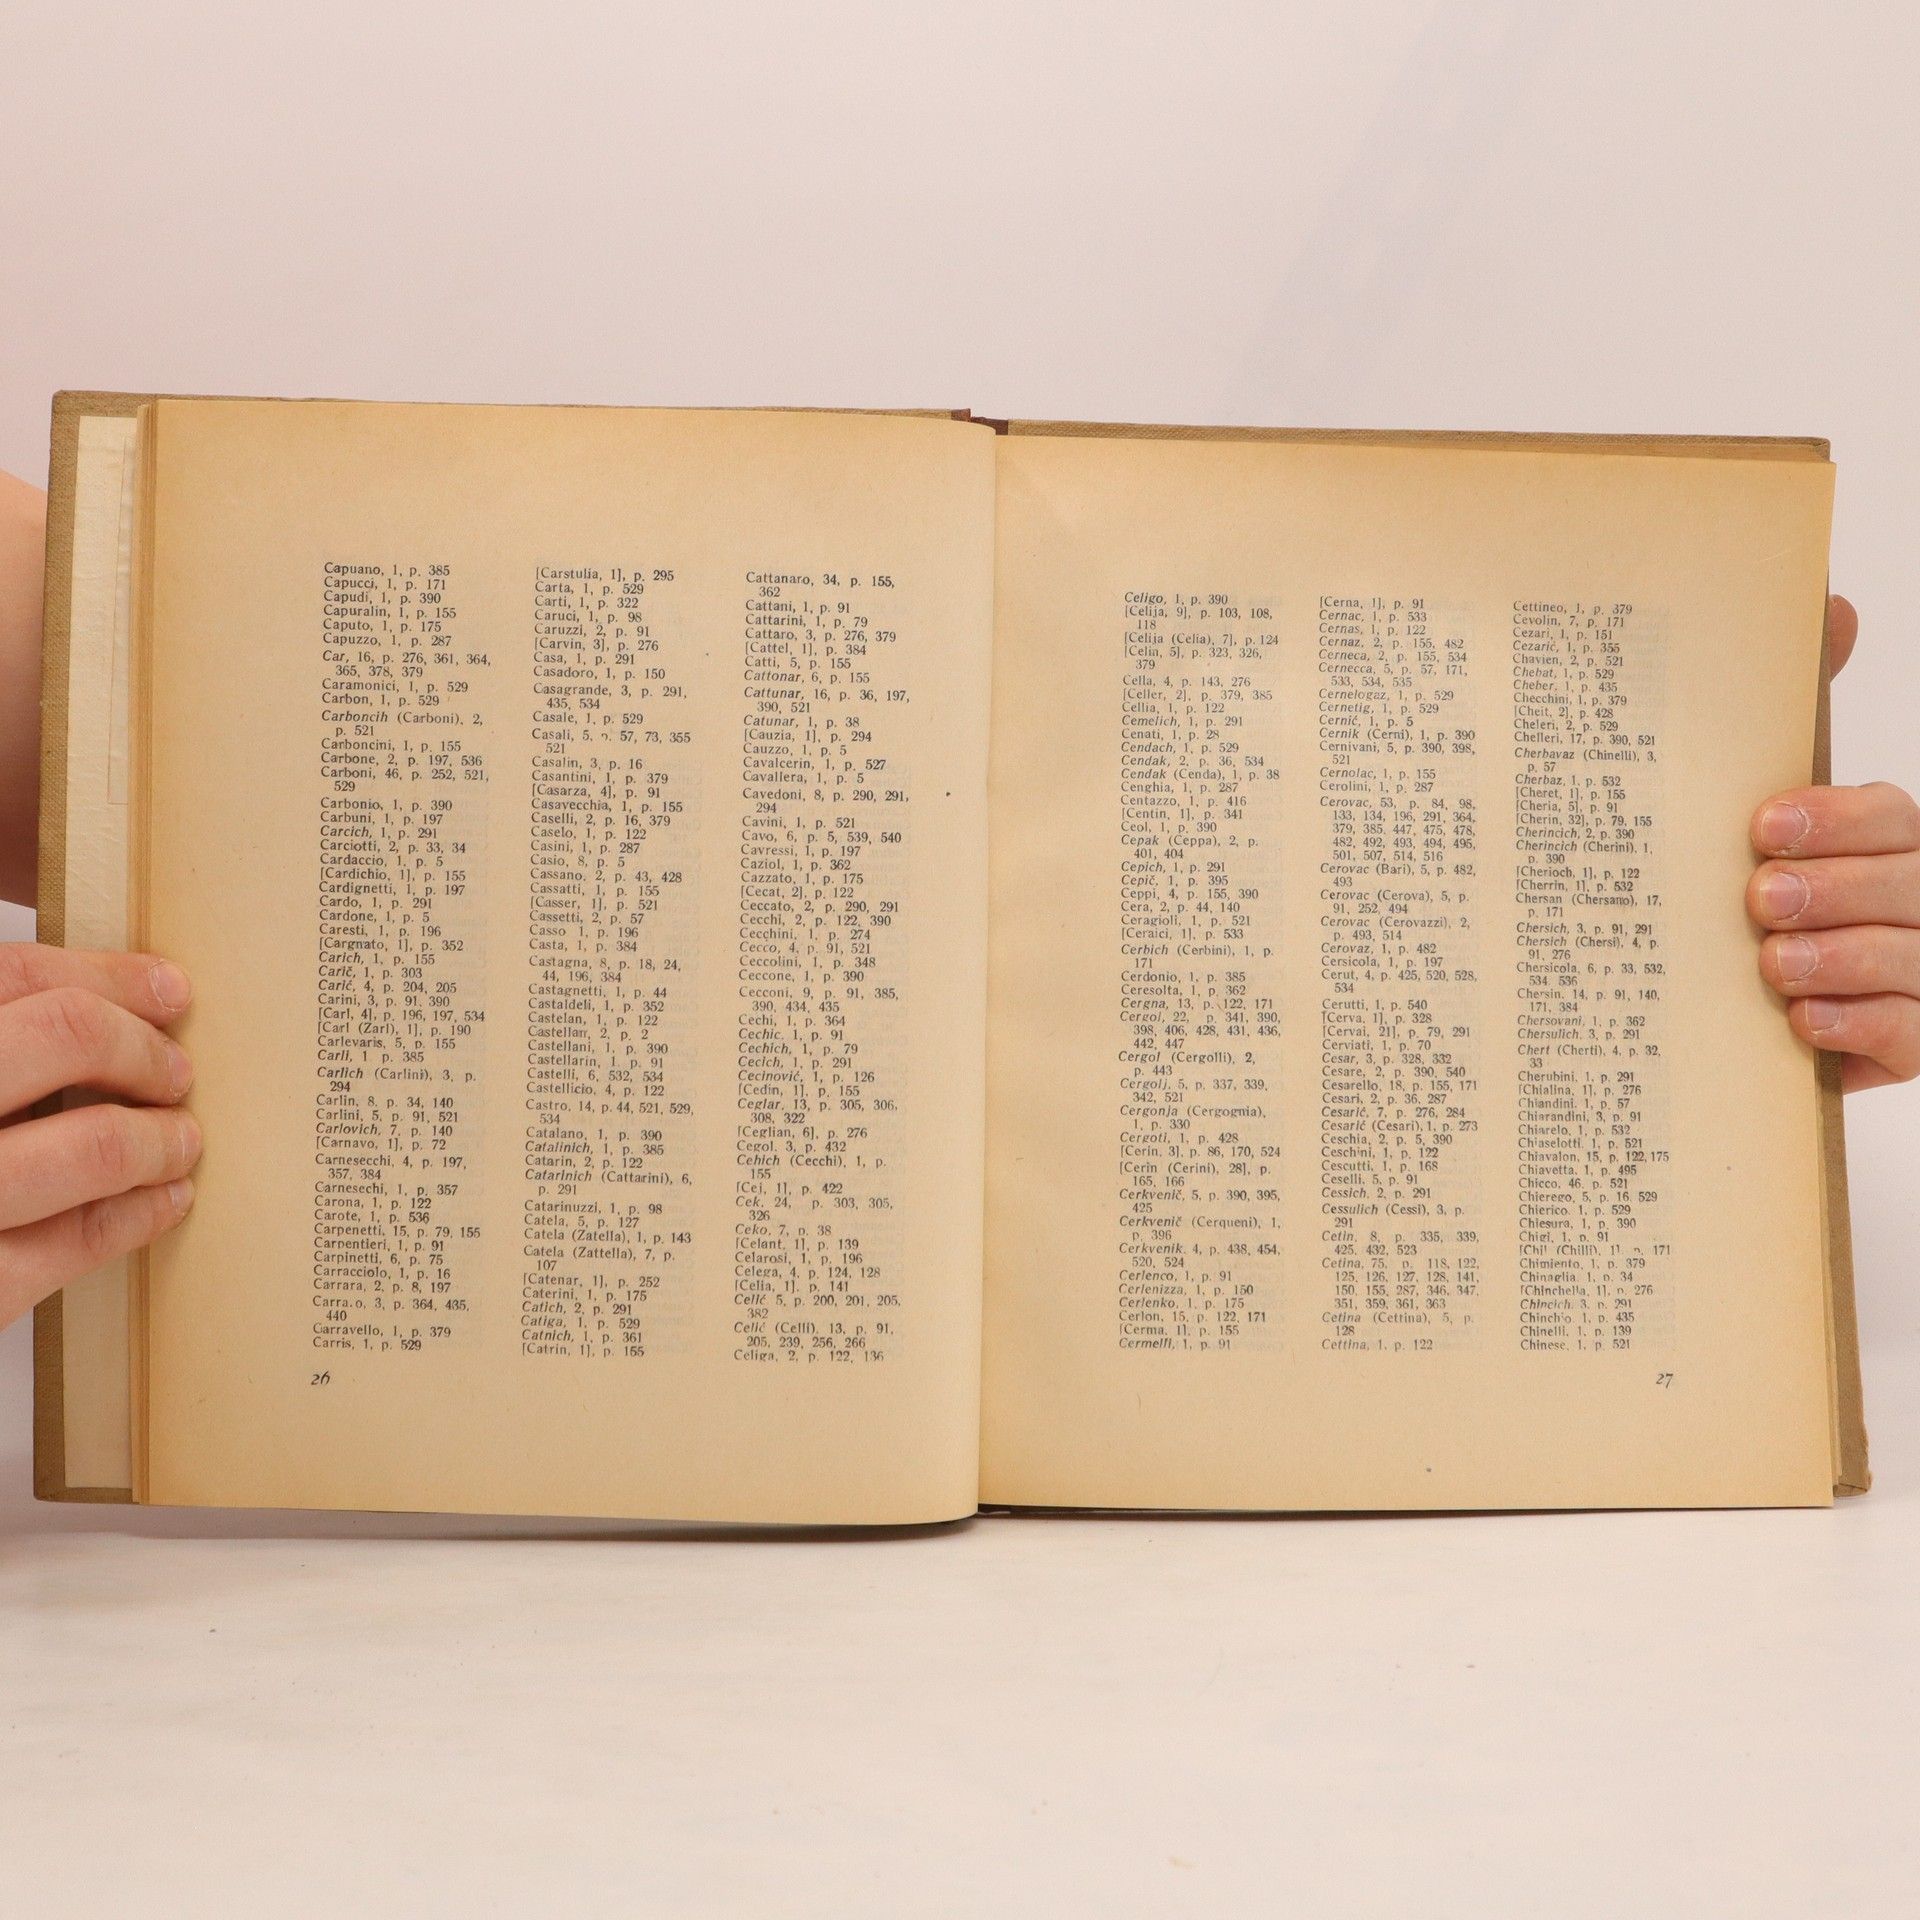 Capuano, 1, p. 385
Capucci, 1, p. 171
Capudi, 1, p. 390
Capuralin, 1, p. 155
Caputo, 1, p. 175
Capuzzo, 1, p. 287
Car, 16, p. 276, 361, 364,
365, 378, 379
Caramonici, 1, p. 529
Carbon, 1, p. 529
Carboncih (Carboni), 2,
p. 521
Carboncini, 1, p. 155
Carbone, 2, p. 197, 536
Carboni, 46, p. 252, 521,
529
Carbonio, 1, p. 390
Carbuni, 1, p. 197
Carcich, 1, p. 291
Carciotti, 2, p. 33, 34
Cardaccio, 1, p. 5
[Cardichio, 1], p. 155
Cardignetti, 1, p. 197
Cardo, 1, p. 291
Cardone, 1, p. 5
Caresti, 1, p. 196
[Cargnato, 1], p. 352
Carich, 1, p. 155
Carič, 1, p. 303
Carić, 4, p. 204, 205
Carini, 3, p. 91, 390
[Carl, 4], p. 196, 197, 534
[Carl (Zarl), 1], p. 190
Carlevaris, 5, p. 155
Carli, 1 p. 385
Carlich (Carlini), 3, p.
294
Carlin, 8, p. 34, 140
Carlini, 5, p. 91, 521
Carlovich, 7, p. 140
[Carnavo, 1], p. 72
Carnesecchi, 4, p. 197,
357, 384
Carnesechi, 1, p. 357
Carona, 1, p. 122
Carote, 1, p. 536
Carpenetti, 15, p. 79, 155
Carpentieri, 1, p. 91
Carpinetti, 6, p. 75
Carracciolo, 1, p. 16
Carrara, 2, p. 8, 197
3, p. 364, 435,
440
Garravello, 1, p. 379
Carris, 1, p. 529
26
[Carstulia, 1], p. 295
Carta, 1, p. 529
Carti, 1, p. 322
Caruci, 1, p. 98
Caruzzi, 2, p. 91
[Carvin, 3], p. 276
Casa, 1, p. 291
Casadoro, 1, p. 150
Casagrande, 3, p. 291,
435, 534
Casale, 1, p. 529
Casali, 5, p. 57, 73, 355
521
Casalin, 3, p. 16
Casantini, 1, p. 379
[Casarza, 4], p. 91
Casavecchia, 1, p. 155
Caselli, 2, p. 16, 379
Caselo, 1, p. 122
Casini, 1, p. 287
Casio, 8, p. 5
Cassano, 2, p. 43, 428
Cassatti, 1, p. 155
[Casser, 1], p. 521
Cassetti, 2, p. 57
Casso 1, p. 196
Casta, 1, p. 384
Castagna, 8, p. 18, 24,
44, 196, 384
Castagnetti, 1, p. 44
Castaldeli, 1, p. 352
Castelan, 1, p. 122
Castellan, 2, p. 2
Castellani, 1, p. 390
Castellarin, 1, p. 91
Castelli, 6, 532, 534
Castellicio, 4, p. 122
Castro, 14, p. 44, 521, 529,
534
Catalano, 1, p. 390
Catalinich, 1, p. 385
Catarin, 2, p. 122
Catarinich (Cattarini), 6,
p. 291
Catarinuzzi, 1, p. 98
Catela, 5, p. 127
Catela (Zatella), 1, p. 143
Catela (Zattella), 7, p.
107
[Catenar, 1], p. 252
Caterini, 1, p. 175
Catich, 2, p. 291
Catiga, 1, p. 529
Catnich, 1, p. 361
[Catrin, 1], p. 155
Cattanaro, 34, p. 155,
362
Cattani, 1, p. 91
Cattarini, 1, p. 79
Cattaro, 3, p. 276, 379
[Cattel, 1], p. 384
Catti, 5, p. 155
Cattonar, 6, p. 155
Cattunar, 16, p. 36, 197,
390, 521
Catunar, 1, p. 38
[Cauzia, 1], p. 294
Cauzzo, 1, p. 5
Cavalcerin, 1, p. 527
Cavallera, 1, p. 5
Cavedoni, 8, p. 290, 291,
294
Cavini, 1, p. 521
Cavo, 6, p. 5, 539, 540
Cavressi, 1, p. 197
Caziol, 1, p. 362
Cazzato, 1, p. 175
[Cecat, 2], p. 122
Ceccato, 2, p. 290, 291
Cecchi, 2, p. 122, 390
Cecchini, 1, p. 274
Cecco, 4, p. 91, 521
Ceccolini, 1, p. 348
Ceccone, 1, p. 390
Cecconi, 9, p. 91, 385,
390, 434, 435
Cechi, 1, p. 364
Cechic, 1, p. 91
Cechich, 1, p. 79
Cecich, 1, p. 291
Cecinović, 1, p. 126
[Cedin, 1], p. 155
Ceglar, 13, p. 305, 306,
308, 322
[Ceglian, 6], p. 276
Cegol, 3, p. 432
Cehich (Cecchi), 1, p.
155
[Cej, 1], p. 422
Cek, 24, p. 303, 305,
326
Ceko, 7, p. 38
[Celant, 1], p. 139
Celarosi, 1, p. 196
Celega, 4, p. 124, 128
[Celia, 1], p. 141
Celić 5, p. 200, 201, 205,
382
Celić (Celli), 13, p. 91,
205, 239, 256, 266
Celiga, 2, p. 122, 136
Celigo, 1, p. 390
[Celija, 9], p. 103, 108,
118
[Celija (Celia), 7], p. 124
[Celin, 5], p. 323, 326,
379
Cella, 4, p. 143, 276
[Celler, 2], p. 379, 385
Cellia, 1, p. 122
Cemelich, 1, p. 291
Cenati, 1, p. 28
Cendach, 1, p. 529
Cendak, 2, p. 36, 534
Cendak (Cenda), 1, p. 38
Cenghia, 1, p. 287
Centazzo, 1, p. 416
[Centin, 1], p. 341
Ceol, 1, p. 390
Cepak (Ceppa), 2, p.
401, 404
Cepich, 1, p. 291
Cepič, 1, p. 395
Ceppi, 4, p. 155, 390
Cera, 2, p. 44, 140
Ceragioli, 1, p. 521
[Ceraici, 1], p. 533
Cerbich (Cerbini), 1, p.
171
Cerdonio, 1, p. 385
Ceresolta, 1, p. 362
Cergna, 13, p. 122, 171
Cergol, 22, p. 341, 390,
398, 406, 428, 431, 436,
442, 447
Cergol (Cergolli), 2,
p. 443
Cergolj, 5, p. 337, 339,
342, 521
Cergonja (Cergognia),
1, p. 330
Cergoti, 1, p. 428
[Cerin, 3], p. 86, 170, 524
[Cerin (Cerini), 28], p.
165, 166
Cerkvenič, 5, p. 390, 395,
425
Cerkvenič (Cerqueni), 1,
p. 396
Cerkvenik, 4, p. 438, 454,
520, 524
Cerlenco, 1, p. 91
Cerlenizza, 1, p. 150
Cerlenko, 1, p. 175
Cerlon, 15, p. 122, 171
[Cerma, 1], p. 155
Cermelli, 1, p. 91
[Cerna, 1], p. 91
Cernac, 1, p. 533
Cernas, 1, p. 122
Cernaz, 2, p. 155, 482
Cerneca, 2, p. 155, 534
Cernecca, 5, p. 57, 171,
533, 534, 535
Cernelogaz, 1, p. 529
Cernetig, 1, p. 529
Cernić, 1, p. 5
Cernik (Cerni), 1, p. 390
Cernivani, 5, p. 390, 398,
521
Cernolac, 1, p. 155
Cerolini, 1, p. 287
Cerovac, 53, p. 84, 98,
133, 134, 196, 291, 364,
379, 385, 447, 475, 478,
482, 492, 493, 494, 495,
501, 507, 514, 516
Cerovac (Bari), 5, p. 482,
493
Cerovac (Cerova), 5, p.
91, 252, 494
Cerovac (Cerovazzi), 2,
p. 493, 514
Cerovaz, 1, p. 482
Cersicola, 1, p. 197
Cerut, 4, p. 425, 520, 528,
534
Cerutti, 1, p. 540
[Cerva, 1], p. 328
[Cervai, 21], p. 79, 291
Cerviati, 1, p. 70
Cesar, 3, p. 328, 332
Cesare, 2, p. 390, 540
Cesarello, 18, p. 155, 171
Cesari, 2, p. 36, 287
Cesarić, 7, p. 276, 284
Cesarić (Cesari), 1, p. 273
Ceschia, 2, p. 5, 390
Ceschini, 1, p. 122
Cescutti, 1, p. 168
Ceselli, 5, p. 91
Cessich, 2, p. 291
Cessulich (Cessi), 3, p.
291
Cetin, 8, p. 335, 339,
425, 432, 523
Cetina, 75, p. 118, 122,
125, 126, 127, 128, 141,
150, 155, 287, 346, 347,
351, 359, 361, 363
Cetina (Cettina), 5, p.
128
Cettina, 1, p. 122
Cettineo, 1, p. 379
Cevolin, 7, p. 171
Cezari, 1, p. 151
Cezarić, 1, p. 355
Chavien, 2, p. 521
Chebat, 1, p. 529
Cheber, 1, p. 435
Checchini, 1, p. 379
[Cheit, 2], p. 428
Cheleri, 2, p. 529
Chelleri, 17, p. 390, 521
Cherbavaz (Chinelli), 3,
p. 57
Cherbaz, 1, p. 532
[Cheret, 1], p. 155
[Cheria, 5], p. 91
[Cherin, 32], p. 79, 155
Cherincich, 2, p. 390
Cherincich (Cherini), 1,
p. 390
[Cherioch, 1], p. 122
[Cherrin, 1], p. 532
Chersan (Chersano), 17,
p. 171
Chersich, 3, p. 91, 291
Chersich (Chersi), 4, p.
91, 276
Chersicola, 6, p. 33, 532,
534, 536
Chersin, 14, p. 91, 140,
171, 384
Chersovani, 1, p. 362
Chersulich, 3, p. 291
Chert (Cherti), 4, p. 32,
33
Cherubini, 1, p. 291
[Chialina, 1], p. 276
Chiandini, 1, p. 57
Chiarandini, 3, p. 91
Chiarelo, 1, p. 532
Chiaselotti, 1, p. 521
Chiavalon, 15, p. 122, 175
Chiavetta, 1, p. 495
Chicco, 46, p. 521
Chierego, 5, p. 16, 529
Chierico, 1, p. 529
Chiesura, 1, p. 390
Chigi, 1, p. 91
[Chil (Chilli), 1], p. 171
Chimiento, 1, p. 379
Chinaglia, 1, p. 34
[Chinchella, 1], p. 276
Chincich, 3, p. 291
Chinchio 1, p. 435
Chinelli, 1, p. 139
Chinese, 1, p. 521
27